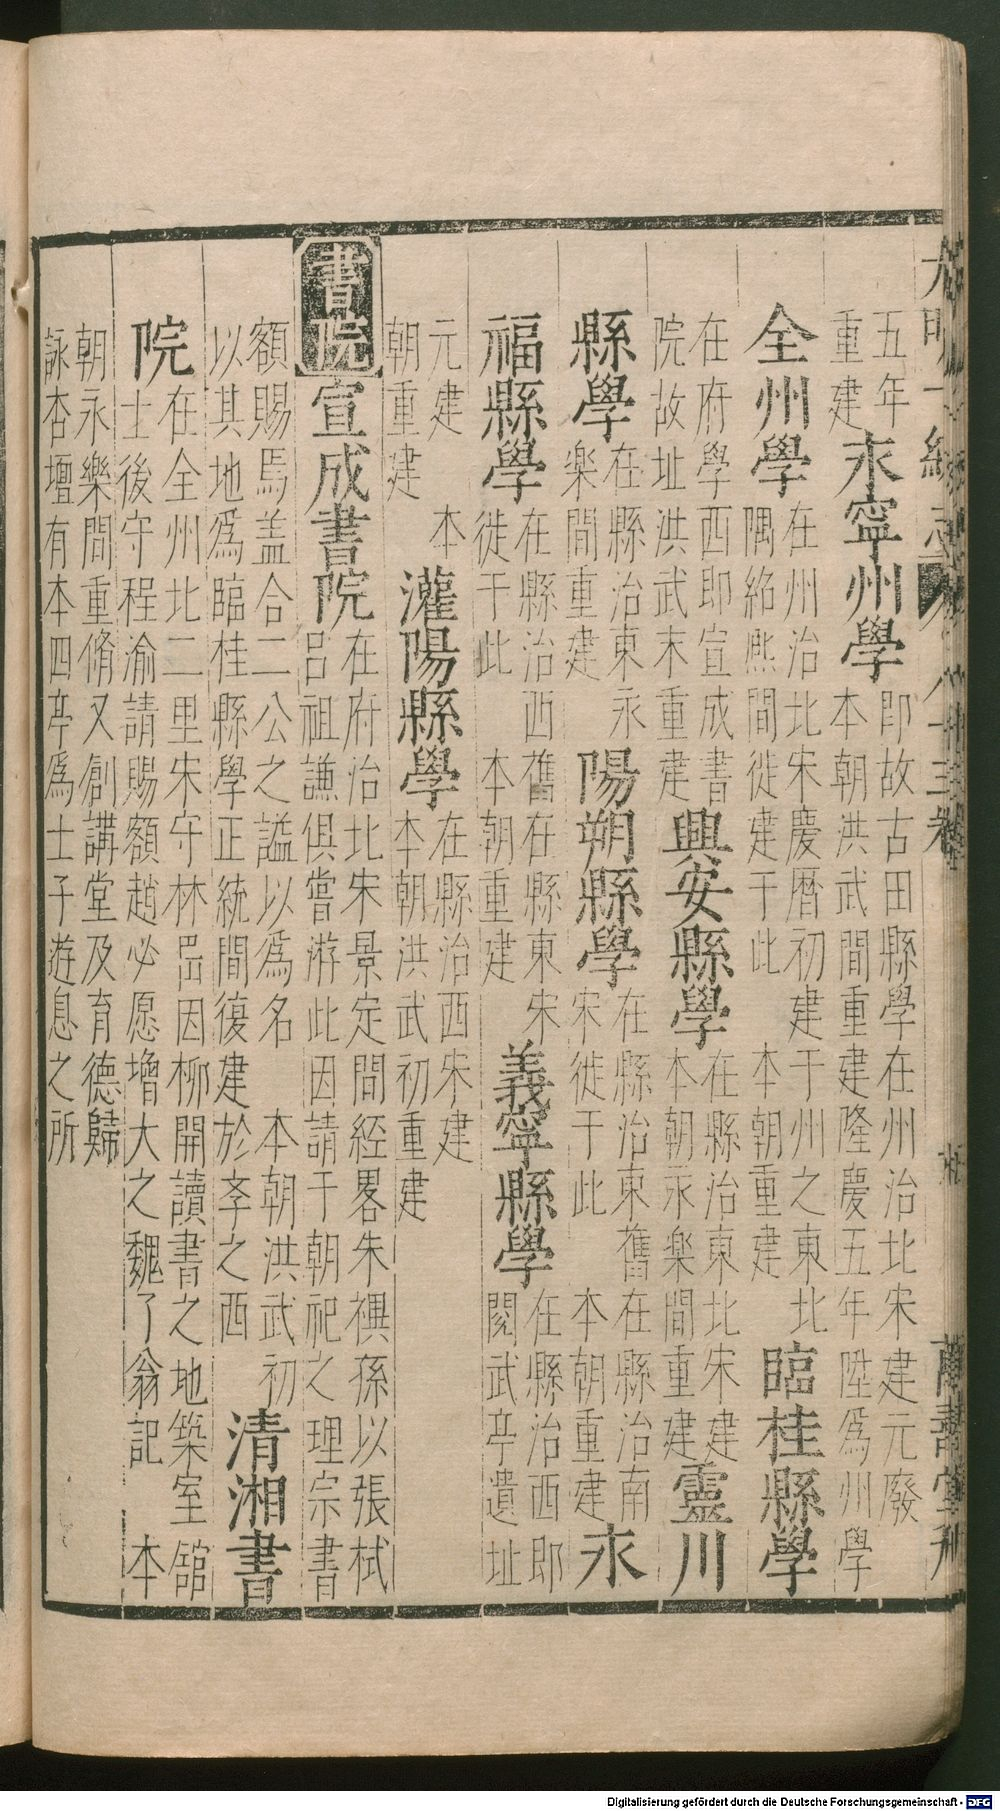 大明一統志 八十三卷
五年重建永寧州學即故古田縣學在州治北宋建元廢本朝洪武間重建隆慶五年陞爲州學
全州學在州治北宋慶曆初建于州之東北隅紹熙間徙建于此 本朝重建臨桂縣學
在府學西即宣成書院故址洪武末重建興安縣學在縣治東北宋建本朝永樂間重建靈川
縣學在縣治東永樂間重建陽朔縣學在縣治東舊在縣治南宋徙于此 本朝重建永
福縣學在縣治西舊在縣東宋徙于此 本朝重建義寧縣學在縣治西即閱武亭遺址
元建 本朝重建灌陽縣學在縣治西宋建本朝洪武初重建
書院 宣成書院在府治北宋景定間經畧朱禩孫以張栻呂祖謙俱嘗游此因請于朝祀之理宗書
額賜焉盖合二公之謚以爲名 本朝洪武初以其地爲臨桂縣學正統間復建於李之西清湘書
院在全州北二里宋守林岊因柳開讀書之地築室舘士後守程渝請賜額趙必愿增大之魏了翁記 本
朝永樂間重脩又創講堂及育德歸詠杏壇有本四亭爲士子遊息之所
Digitalisierung gefördert durch die Deutsche Forschungsgemeinschaft - DFG